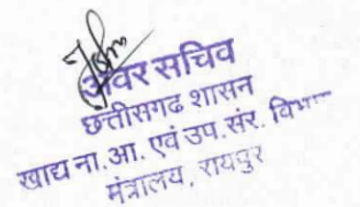 अवर सचिव
छत्तीसगढ शासन
खाद्य ना.आ. एवं उप.संर. विभाग
मंत्रालय, रायपुर